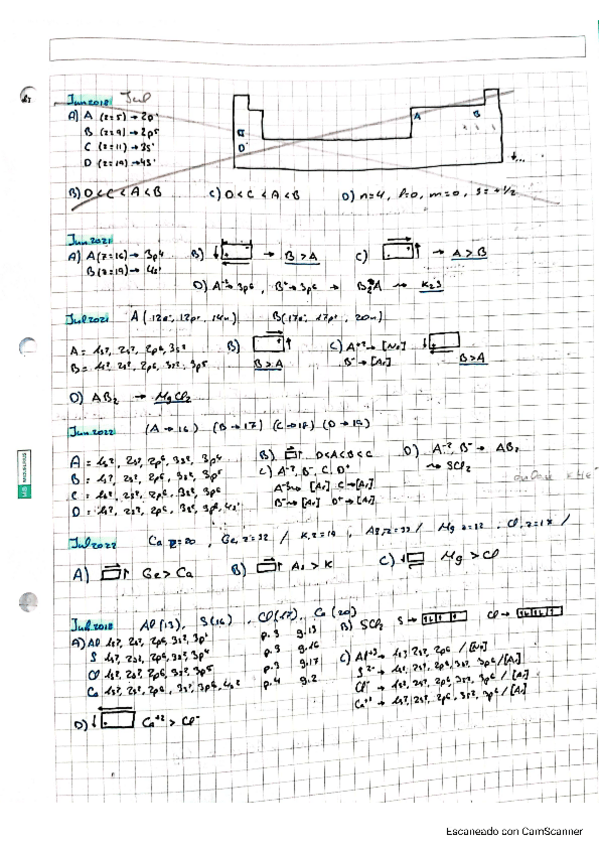 Jun 2018 Jul
A) A (z=5) → 2p¹
B (z=9) → 2p5
C (z=11) → 3s¹
D (z=19) → 4s¹
A B
C
D
B) D < C < A < B C) D < C < A < B D) n=4, l=0, m=0, s=+1/2
Jun 2021
A) A (z=16) → 3p4 B) → B > A C) → A > B
B (z=19) → 4s¹
D) A⁻² → 3p6, B⁺ → 3p6 → B₂A → K₂S
Jul 2021 A (12e⁻, 12p⁺, 14n) B (17e⁻, 17p⁺, 20n)
A = 1s², 2s², 2p6, 3s² B) C) A⁺² → [Ne]
B = 1s², 2s², 2p6, 3s², 3p5 B > A B⁻ → [Ar] B > A
D) AB₂ → MgCl₂
Jun 2022 (A → 16) (B → 17) (C → 18) (D → 19)
A = 1s², 2s², 2p6, 3s², 3p4 B) D < A < B < C D) A⁻², B⁻ → AB₂
B = 1s², 2s², 2p6, 3s², 3p5 C) A⁻², B⁻, C, D⁺ → SCl₂
C = 1s², 2s², 2p6, 3s², 3p6 A⁻² → [Ar] C → [Ar]
D = 1s², 2s², 2p6, 3s², 3p6, 4s¹ B⁻ → [Ar] D⁺ → [Ar]
Jul 2022 Ca z=20, Ge, z=32 / K, z=19, As, z=33 / Mg z=12, Cl, z=17 /
A) Ge > Ca B) As > K C) Mg > Cl
Jul 2018 Al (13), S (16), Cl (17), Ca (20)
A) Al 1s², 2s², 2p6, 3s², 3p¹ p.3 g.13 B) SCl₂ S → Cl →
S 1s², 2s², 2p6, 3s², 3p4 p.3 g.16
Cl 1s², 2s², 2p6, 3s², 3p5 p.3 g.17
Ca 1s², 2s², 2p6, 3s², 3p6, 4s² p.4 g.2
C) Al⁺³ → 1s², 2s², 2p6 / [Ne]
S²⁻ → 1s², 2s², 2p6, 3s², 3p6 / [Ar]
Cl⁻ → 1s², 2s², 2p6, 3s², 3p6 / [Ar]
Ca⁺² → 1s², 2s², 2p6, 3s², 3p6 / [Ar]
D) Ca⁺² > Cl⁻
Escaneado con CamScanner